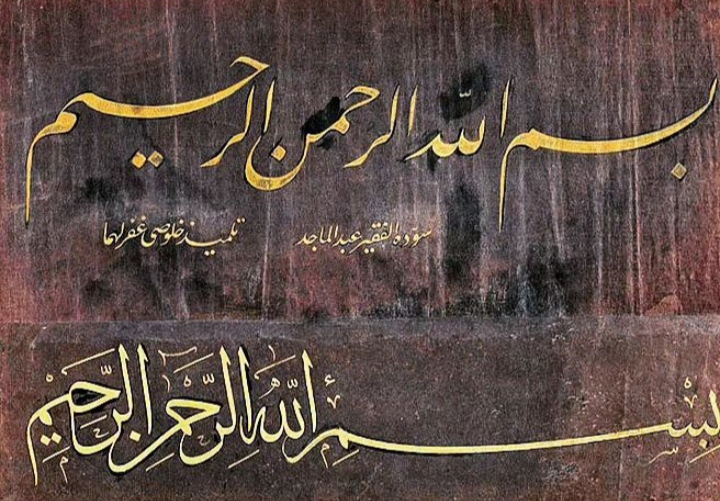 بسم الله الرحمن الرحيم
سوّده الفقير عبد الماجد تلميذ خلوصي غفر لهما
بِسْمِ اللّٰهِ الرَّحْمٰنِ الرَّحِيْمِ